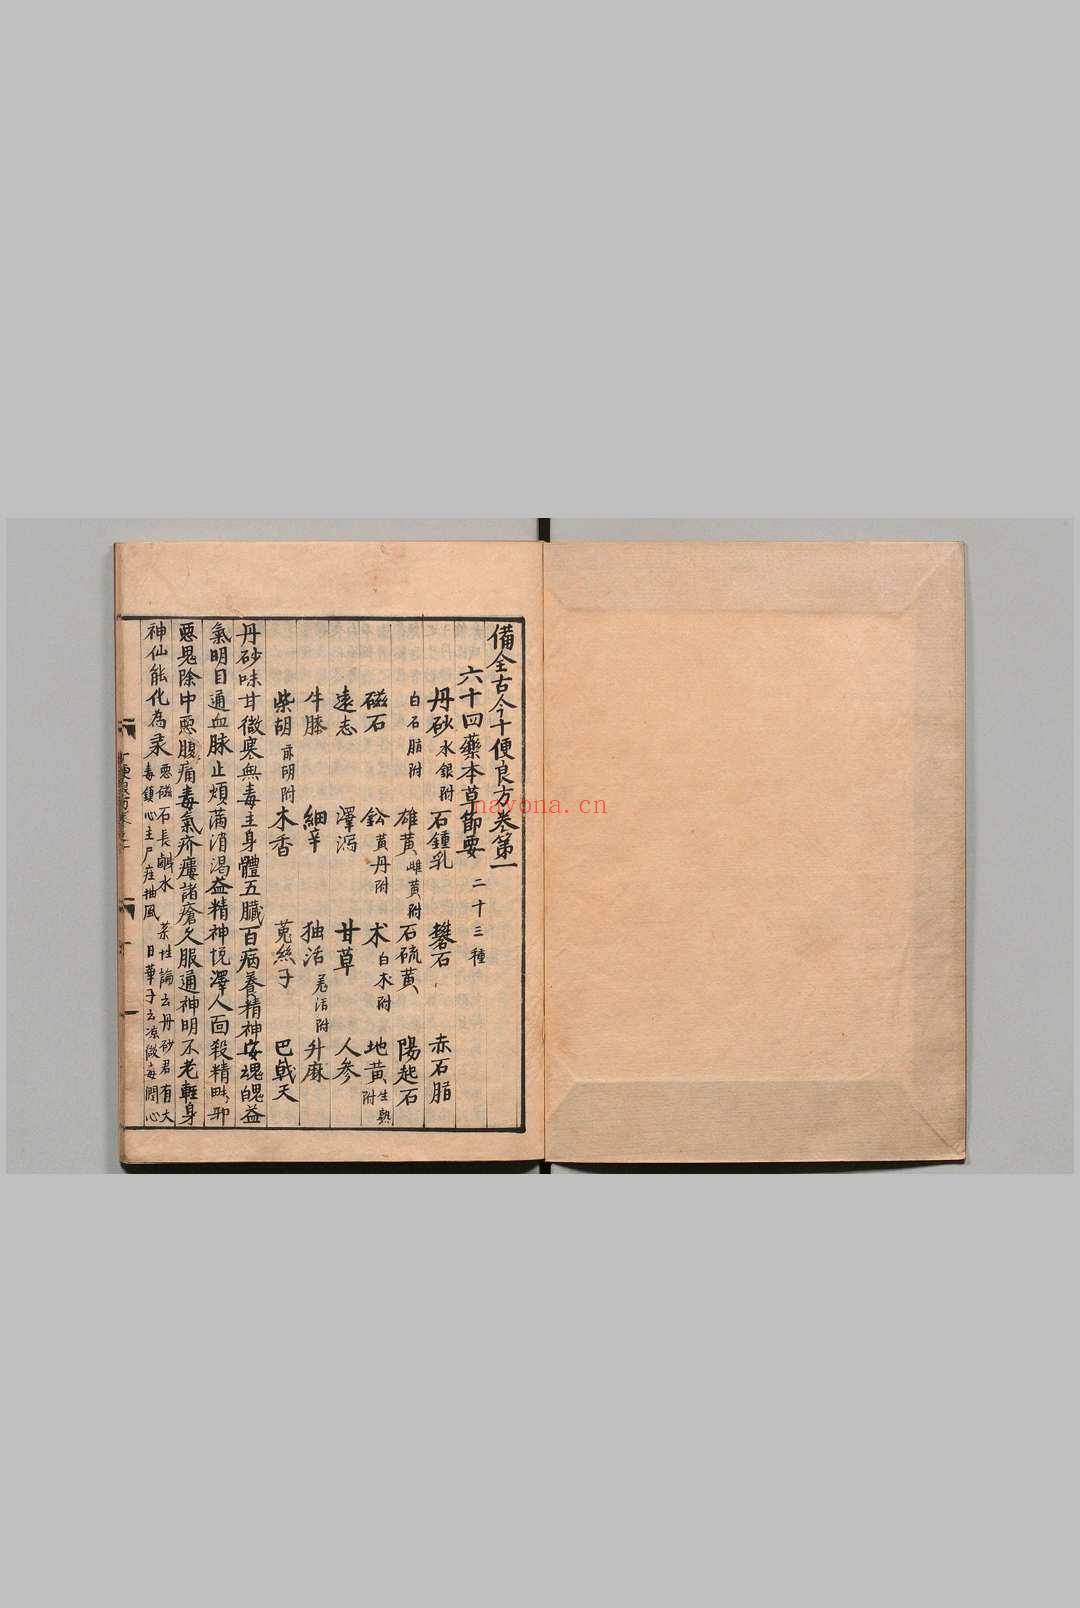 備全古今十便良方卷第一
六十四藥本草節要 二十三種
丹砂 水銀附 石鍾乳 礬石 赤石脂
白石脂附 雄黃 雌黃附 石硫黃 陽起石
磁石 鈆 黃丹附 术 白术附 地黃 生熟附
遠志 澤瀉 甘草 人參
牛膝 細辛 獨活 羌活附 升麻
柴胡 前胡附 木香 菟絲子 巴戟天
丹砂味甘微寒無毒主身體五臟百病養精神安魂魄益
氣明目通血脉止煩滿消渴益精神悅澤人面殺精魅邪
惡鬼除中惡腹痛毒氣疥瘻諸瘡久服通神明不老輕身
神仙能化為汞 惡磁石長鹹水 藥性論云丹砂君有大
毒鎮心主尸疰抽風 日華子云凉微毒潤心
nayona.cn